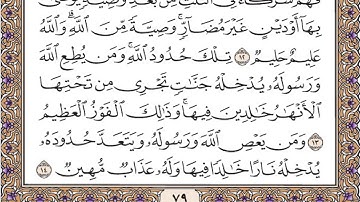 فَهُمْ شُرَكَآءُ فِى ٱلثُّلُثِ مِنۢ بَعْدِ وَصِيَّةٍ يُوصَىٰ
بِهَآ أَوْ دَيْنٍ غَيْرَ مُضَآرٍّ وَصِيَّةً مِّنَ ٱللَّهِ وَٱللَّهُ
عَلِيمٌ حَلِيمٌ ١٢ تِلْكَ حُدُودُ ٱللَّهِ وَمَن يُطِعِ ٱللَّهَ
وَرَسُولَهُۥ يُدْخِلْهُ جَنَّٰتٍ تَجْرِى مِن تَحْتِهَا
ٱلْأَنْهَٰرُ خَٰلِدِينَ فِيهَا وَذَٰلِكَ ٱلْفَوْزُ ٱلْعَظِيمُ
١٣ وَمَن يَعْصِ ٱللَّهَ وَرَسُولَهُۥ وَيَتَعَدَّ حُدُودَهُۥ
يُدْخِلْهُ نَارًا خَٰلِدًا فِيهَا وَلَهُۥ عَذَابٌ مُّهِينٌ ١٤
٧٩